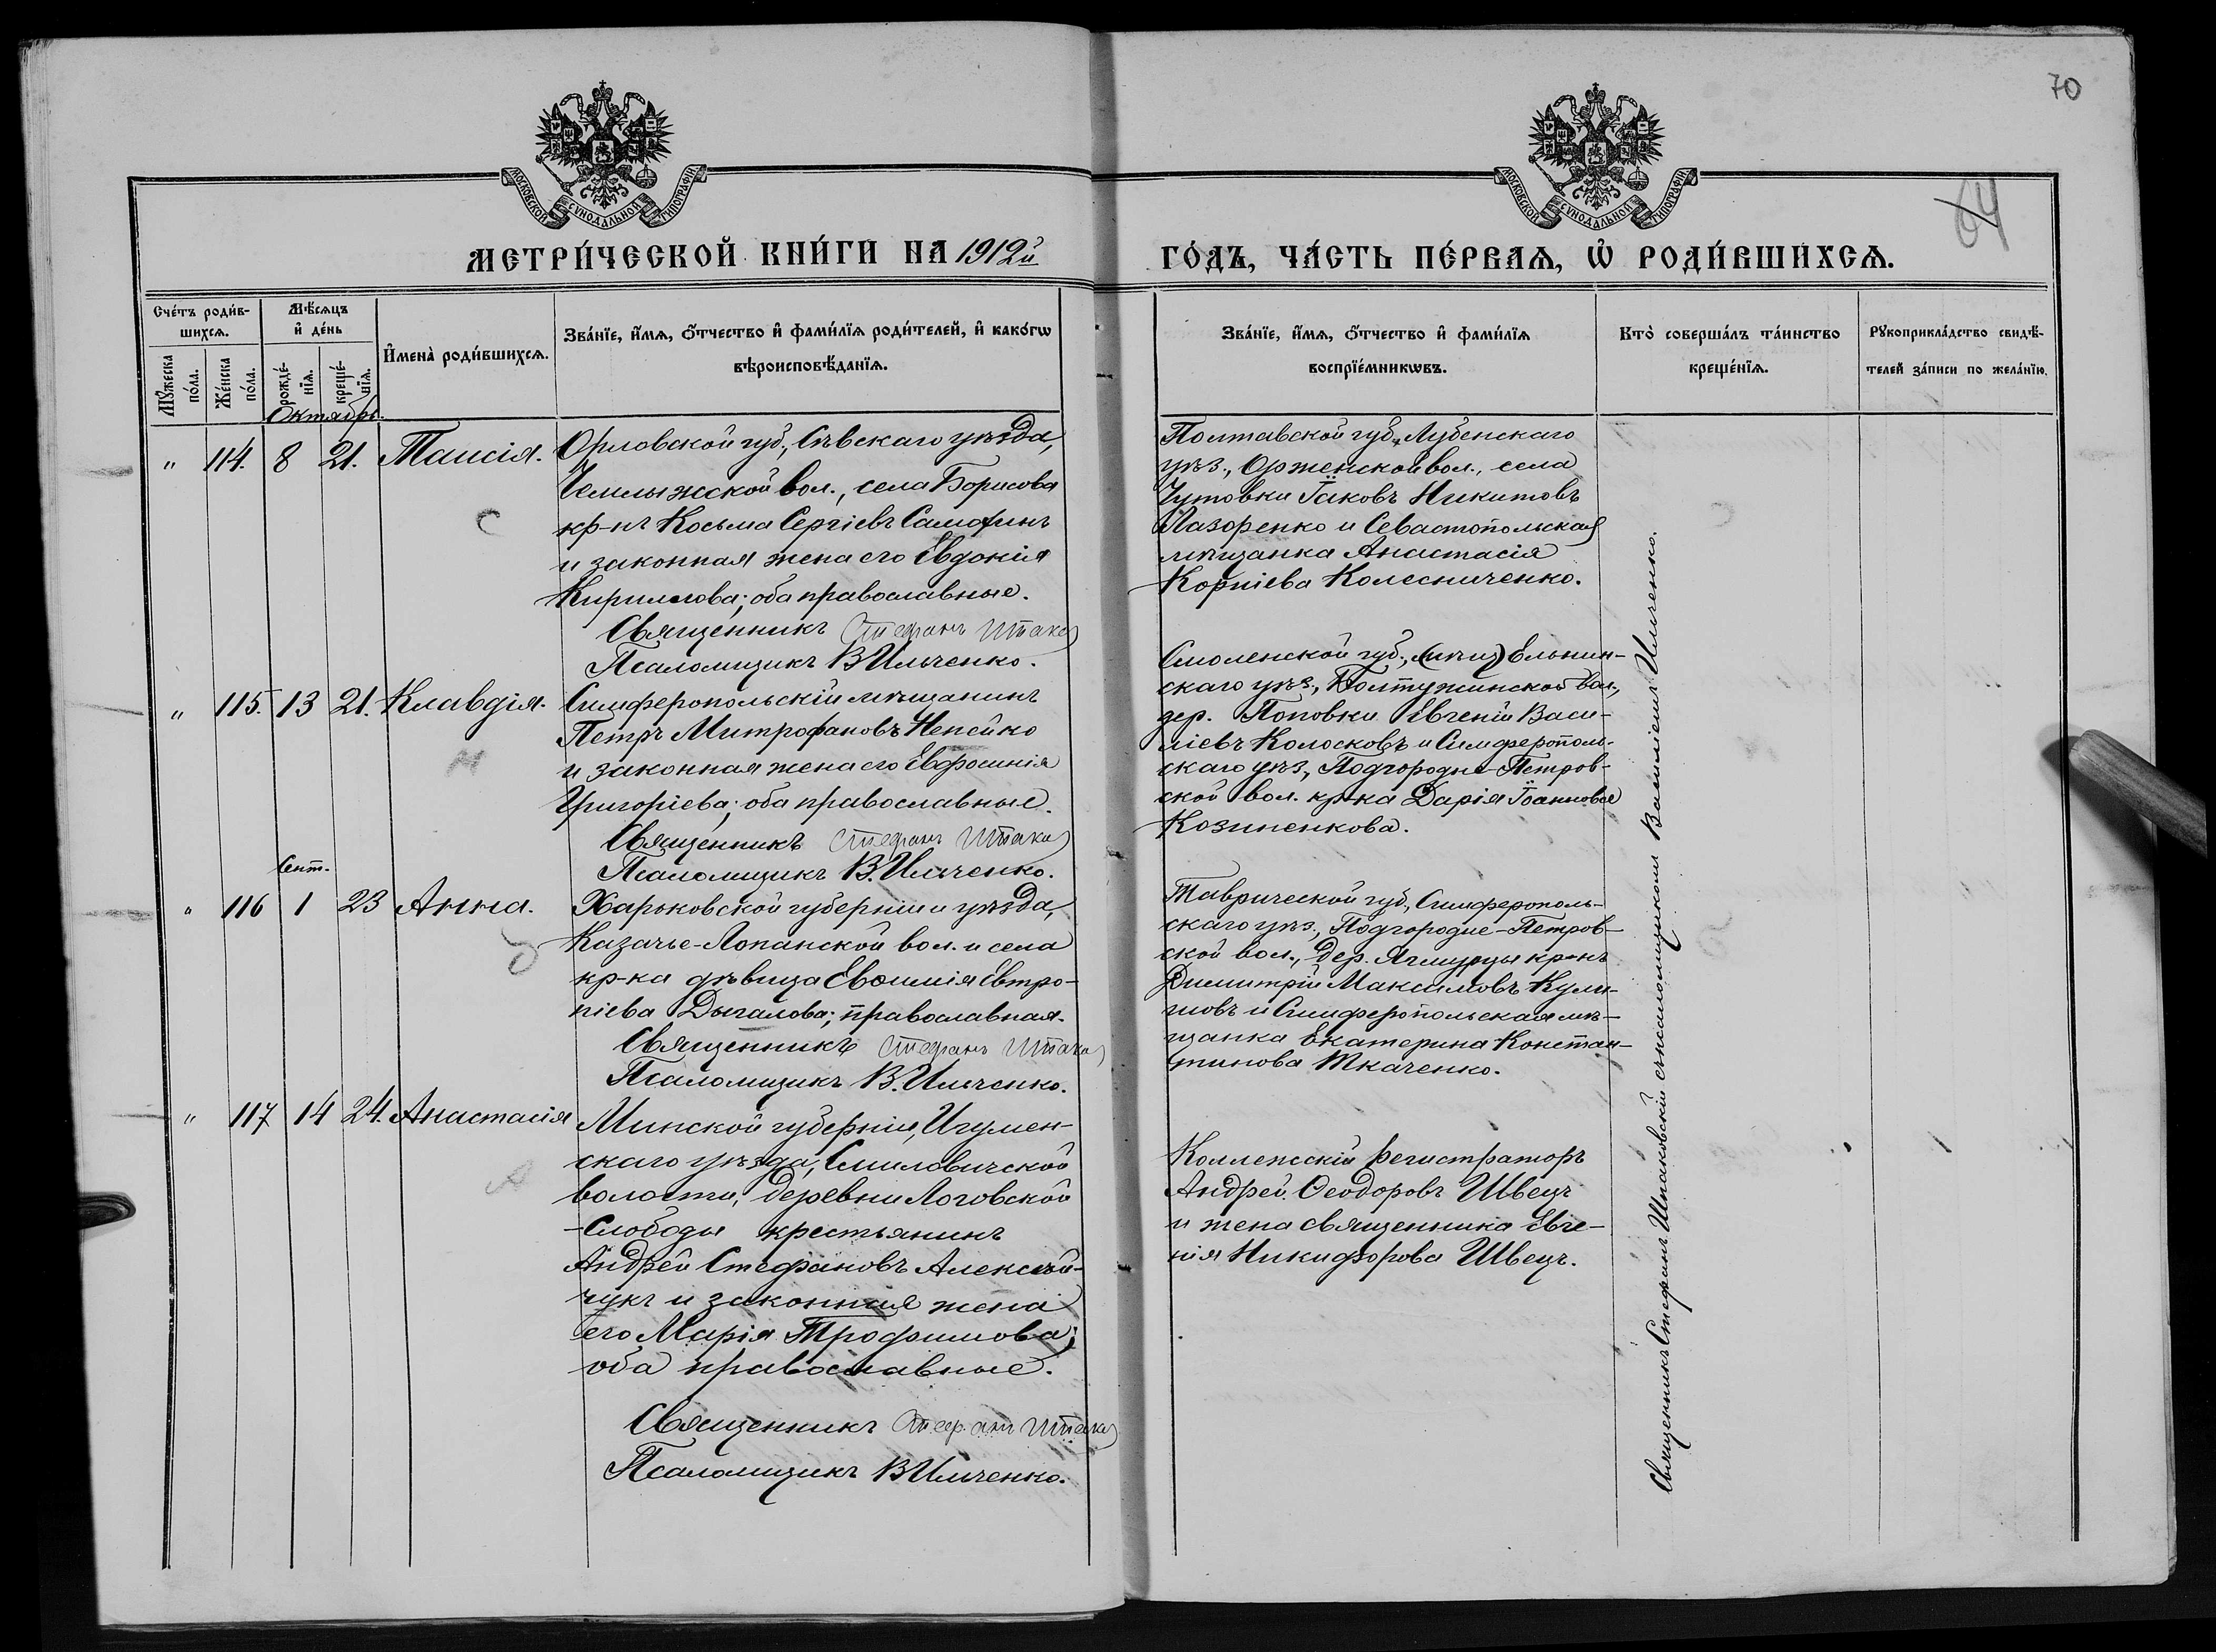 70
64
МОСКОВСКОЙ СѴНОДАЛЬНОЙ ТИПОГРАФІИ
МОСКОВСКОЙ СѴНОДАЛЬНОЙ ТИПОГРАФІИ
МЕТРИ́ЧЕСКОЙ КНИ́ГИ НА 1912й
ГО́ДЪ, ЧА́СТЬ ПЕ́РВАѦ, Ѡ҆ РОДИ́ВШИХСѦ.
Сче́тъ роди́в-
шихсѧ.
Мѣ́сѧцъ
и҆ де́нь
Мꙋ́жеска по́ла.
Же́нска по́ла.
рожде́-нїѧ.
креще́-нїѧ.
И҆мена̀ роди́вшихсѧ.
Зва́нїе, и҆́мѧ, ѻ҆́тчество и҆ фами́лїѧ роди́телей, и҆ како́гѡ
вѣроисповѣ́данїѧ.
Зва́нїе, и҆́мѧ, ѻ҆́тчество и҆ фами́лїѧ
воспрїе́мникѡвъ.
Кто̀ соверша́лъ та́инство
креще́нїѧ.
Рꙋкоприкла́дство свидѣ́-
телей за́писи по жела́нїю.
Октябрь.
" 114. 8 21. Таисія.
Орловской губ., Сѣвскаго уѣзда,
Чемлыжской вол., села Борисова
кр-нъ Косьма Сергіевъ Самохинъ
и законная жена его Евдокія
Кириллова; оба православные.
Священникъ Стефанъ Шпако
Псаломщикъ В Ильченко.
Полтавской губ., Лубенскаго
уѣз., Орженской вол., села
Чутовки Іаковъ Никитовъ
Лазоренко и Севастопольская
мѣщанка Анастасія
Корніева Колесниченко.
С
" 115. 13 21. Клавдія.
Симферопольскій мѣщанинъ
Петръ Митрофановъ Непейко
и законная жена его Евфросинія
Григоріева; оба православные.
Священникъ Стефанъ Шпако
Псаломщикъ В. Ильченко.
Смоленской губ., (мѣщ) Ельнин-
скаго уѣз., Болтутинской вол.,
дер. Поповки Евгеній Васи-
ліевъ Колосковъ и Симферополь-
скаго уѣз., Подгородне-Петров-
ской вол. кр-ка Дарія Іоаннова
Козиненкова.
Н
Сент.
" 116 1 23 Анна.
Харьковской губерніи и уѣзда,
Казачье-Лопанской вол. и села
кр-ка дѣвица Евѳимія Евтро-
піева Дыгалова; православная.
Священникъ Стефанъ Шпако
Псаломщикъ В. Ильченко.
Таврической губ., Симферополь-
скаго уѣз., Подгородне-Петров-
ской вол., дер. кр-нъ
Димитрій Максимовъ Кули-
шовъ и Симферопольская мѣ-
щанка Екатерина Констан-
тинова Ткаченко.
" 117 14 24. Анастасія
Минской губерніи, Игумен-
скаго уѣзда, Смиловичской
волости, деревни Логовской
-Слободы крестьянинъ
Андрей Стефановъ Алексей-
чукъ и законная жена
его Марія Трофимова;
оба православные.
Священникъ Стефанъ Шпако
Псаломщикъ В Ильченко.
Коллежскій регистраторъ
Андрей Ѳеодоровъ Швецъ
и жена священника Евге-
нія Никифорова Швецъ.
А
Священникъ Стефанъ Шпаковскій съ псаломщикомъ Василіемъ Ильченко.